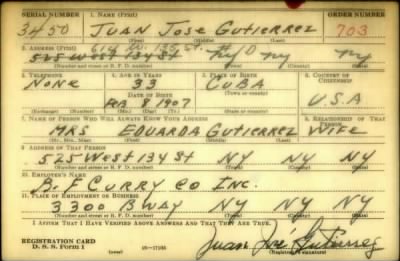 SERIAL NUMBER 1. NAME (Print) ORDER NUMBER
3450 JUAN JOSE GUTIERREZ 703
(First) (Middle) (Last)
2. ADDRESS (Print) 614 W. 135 St.
525 WEST 134 ST NY NY
(Number and street or R. F. D. number) (Town) (County) (State)
3. TELEPHONE 4. AGE IN YEARS 5. PLACE OF BIRTH 6. COUNTRY OF CITIZENSHIP
NONE 33 CUBA
DATE OF BIRTH (Town or county)
FEB 8 1907 U.S.A
(Exchange) (Number) (Mo.) (Day) (Yr.) (State or country)
7. NAME OF PERSON WHO WILL ALWAYS KNOW YOUR ADDRESS 8. RELATIONSHIP OF THAT PERSON
MRS EDUARDA GUTIERREZ WIFE
(Mr., Mrs., Miss) (First) (Middle) (Last)
9. ADDRESS OF THAT PERSON
525 West 134 St NY NY NY
(Number and street or R. F. D. number) (Town) (County) (State)
10. EMPLOYER'S NAME
B. F CURRY CO INC.
11. PLACE OF EMPLOYMENT OR BUSINESS
3300 BWAY NY NY NY
(Number and street or R. F. D. number) (Town) (County) (State)
I AFFIRM THAT I HAVE VERIFIED ABOVE ANSWERS AND THAT THEY ARE TRUE.
REGISTRATION CARD
D. S. S. Form 1 (over) 16—17105 Juan José Gutierrez
(Registrant's signature)